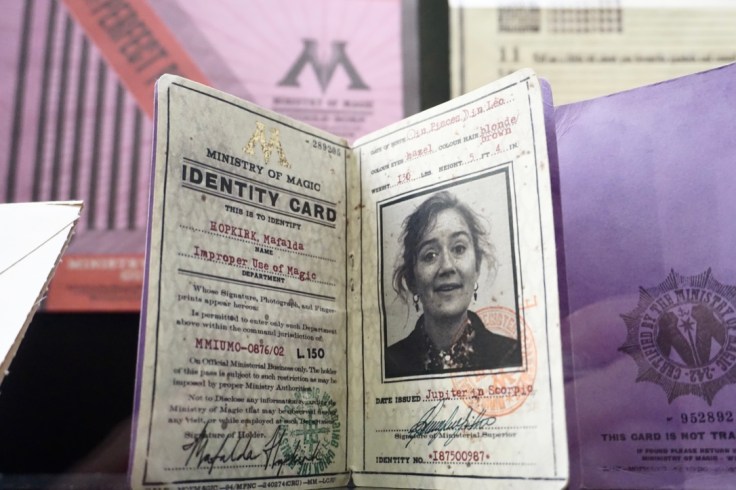 PERFECT
MINISTRY OF MAGIC
11
289205
MINISTRY OF MAGIC
IDENTITY CARD
THIS IS TO IDENTIFY
HOPKIRK, Mafalda
NAME
Improper Use of Magic
DEPARTMENT
Whose Signature, Photograph, and Finger-
prints appear hereon:
Is permitted to enter only such Department
above within the command jurisdiction of:
MMIUMO-0876/02 L.150
On Official Ministerial Business only. The holder
of this pass is subject to such restriction as may be
imposed by proper Ministry Authorities.
Not to Disclose any information
Ministry of Magic that may be
any visit, or while employed at such Department.
Signature of Holder.
Mafalda Hopkirk
DATE OF BIRTH Pisces
COLOUR EYES hazel COLOUR HAIR blonde/
brown
WEIGHT 130 LBS. HEIGHT 5 FT 4 IN
DATE ISSUED Jupiter in Scorpio
Signature of Ministerial Superior
IDENTITY NO. *I87500987*
CERTIFIED BY THE MINISTRY OF MAGIC
952892
THIS CARD IS NOT
IF FOUND PLEASE RETURN
MINISTRY OF MAGIC